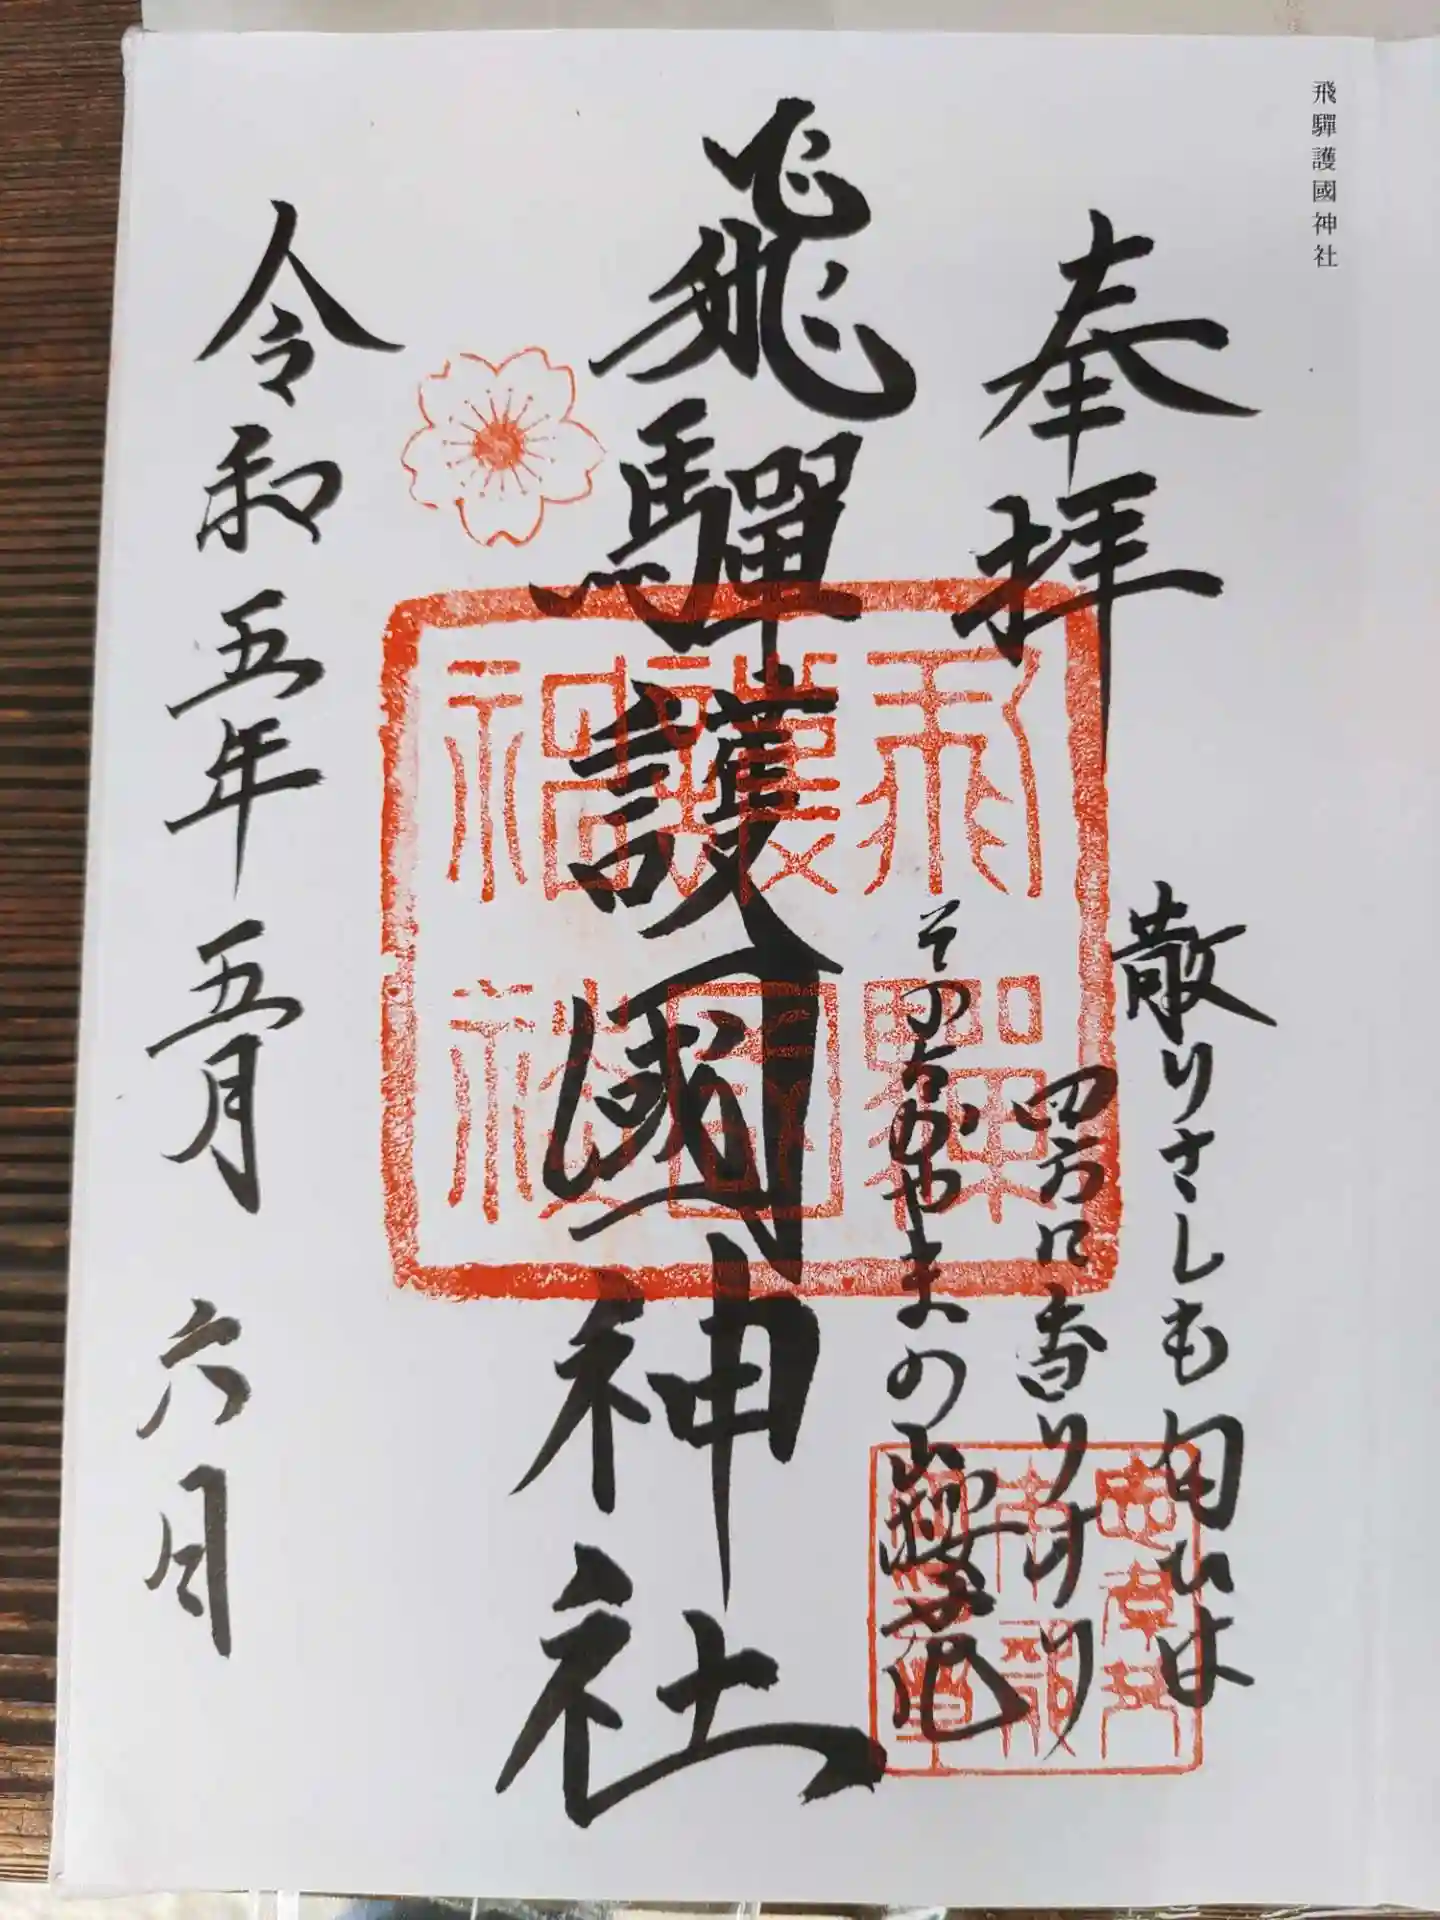 飛驒護國神社
奉拝
散りさしも匂ひは
四方に香りけり
そのたかやまの山桜花
飛驒護國神社
飛驒
護國
神社
令和五年五月六日